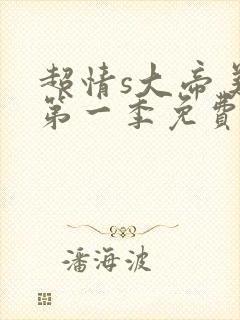 超情s大帝
第一季免費
潘海波